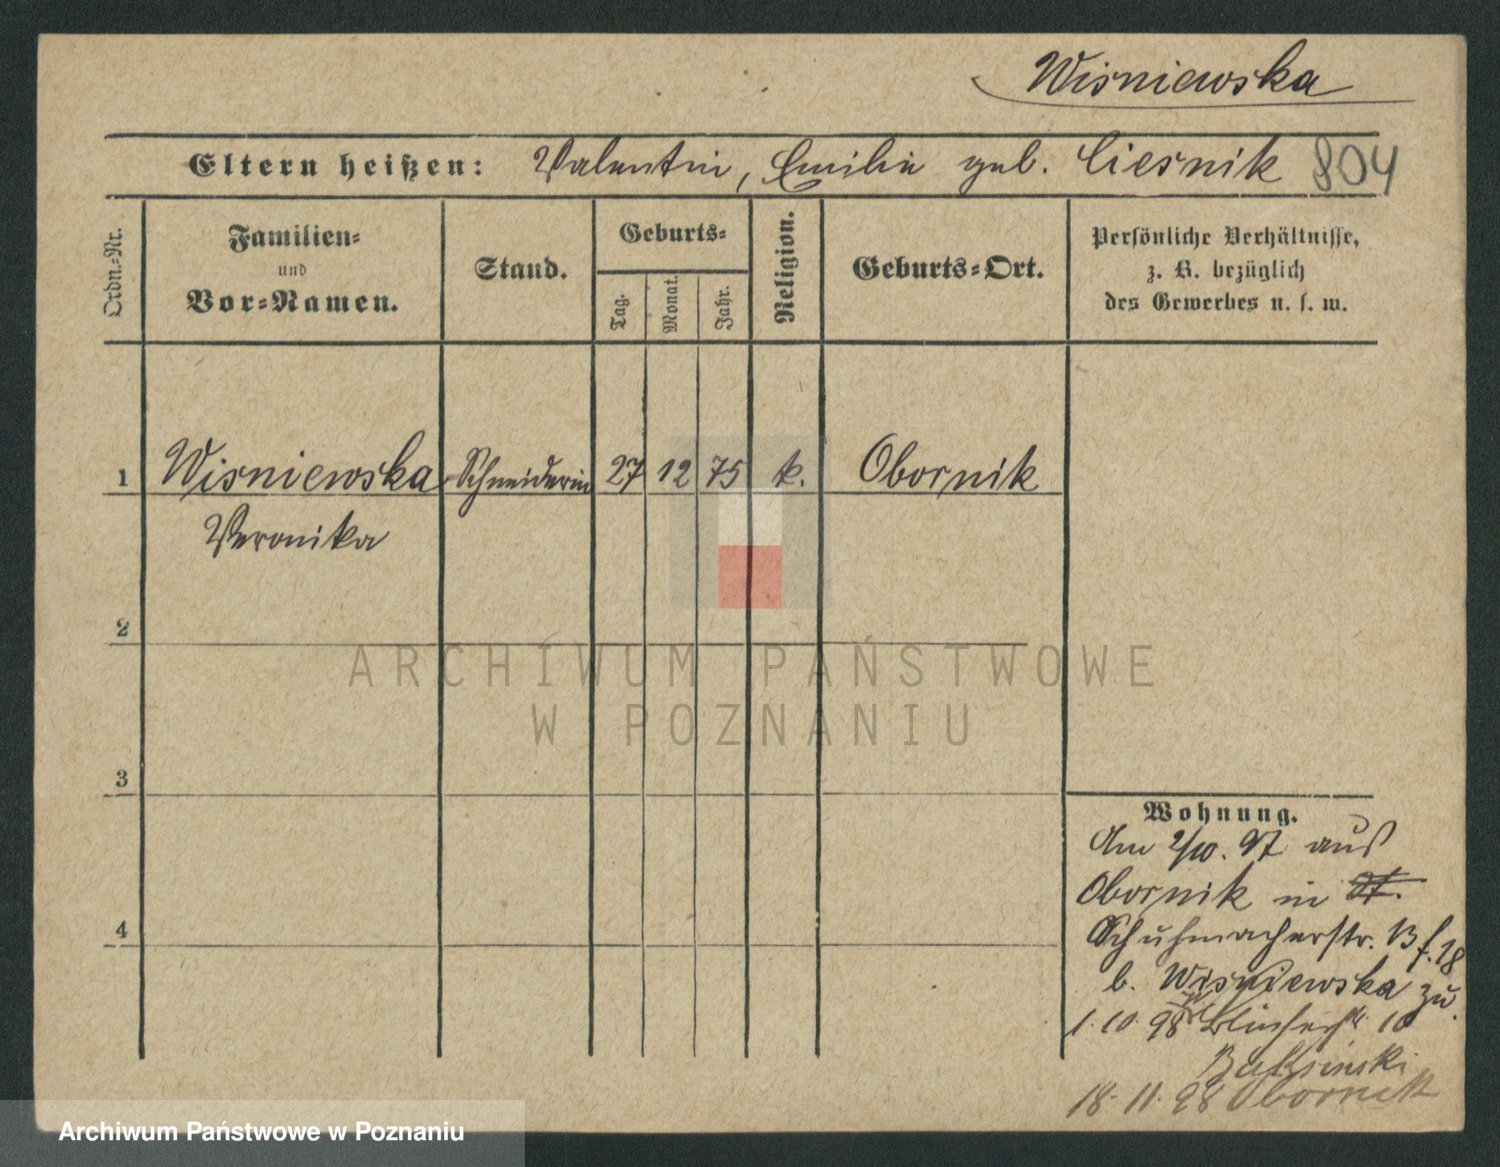 Wisniewska
Eltern heißen: Valentin, Emilie geb. Ciesnik 804
Ordn.-Nr.
Familien-
und
Vor-Namen.
Stand.
Geburts-
Tag.
Monat.
Jahr.
Religion.
Geburts-Ort.
Persönliche Verhältnisse,
z. B. bezüglich
des Gewerbes u. s. w.
1 Wisniewska Schneiderin 27 12 75 k. Obornik
Veronika
2
3
4
Wohnung.
Am 2/10. 97 aus
Obornik in
Schuhmacherstr. 13
b. Wisniewska zu.
1. 10. 98 10
18. 11. 98 Obornik
ARCHIWUM PAŃSTWOWE
W POZNANIU
Archiwum Państwowe w Poznaniu